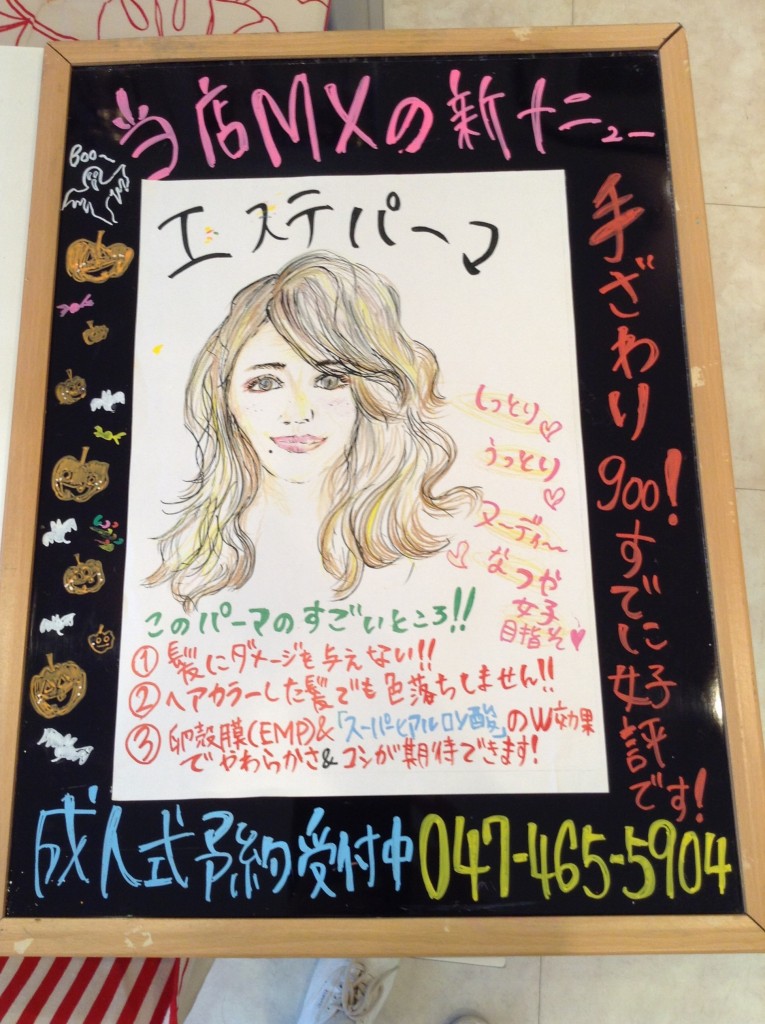 当店MXの新メニュー
Boo〜
エステパーマ
手ざわり900!すでに好評です!
しっとり♡
うっとり♡
ヌーディー
なつや
女子
目指そ♥
このパーマのすごいところ!!
①髪にダメージも与えない!!
②ヘアカラーした髪でも色落ちしません!!
③卵殻膜(EMP)&「スーパーヒアルロン酸」のW効果
でやわらかさ&コシが期待できます!
成人式予約受付中 047-465-5904